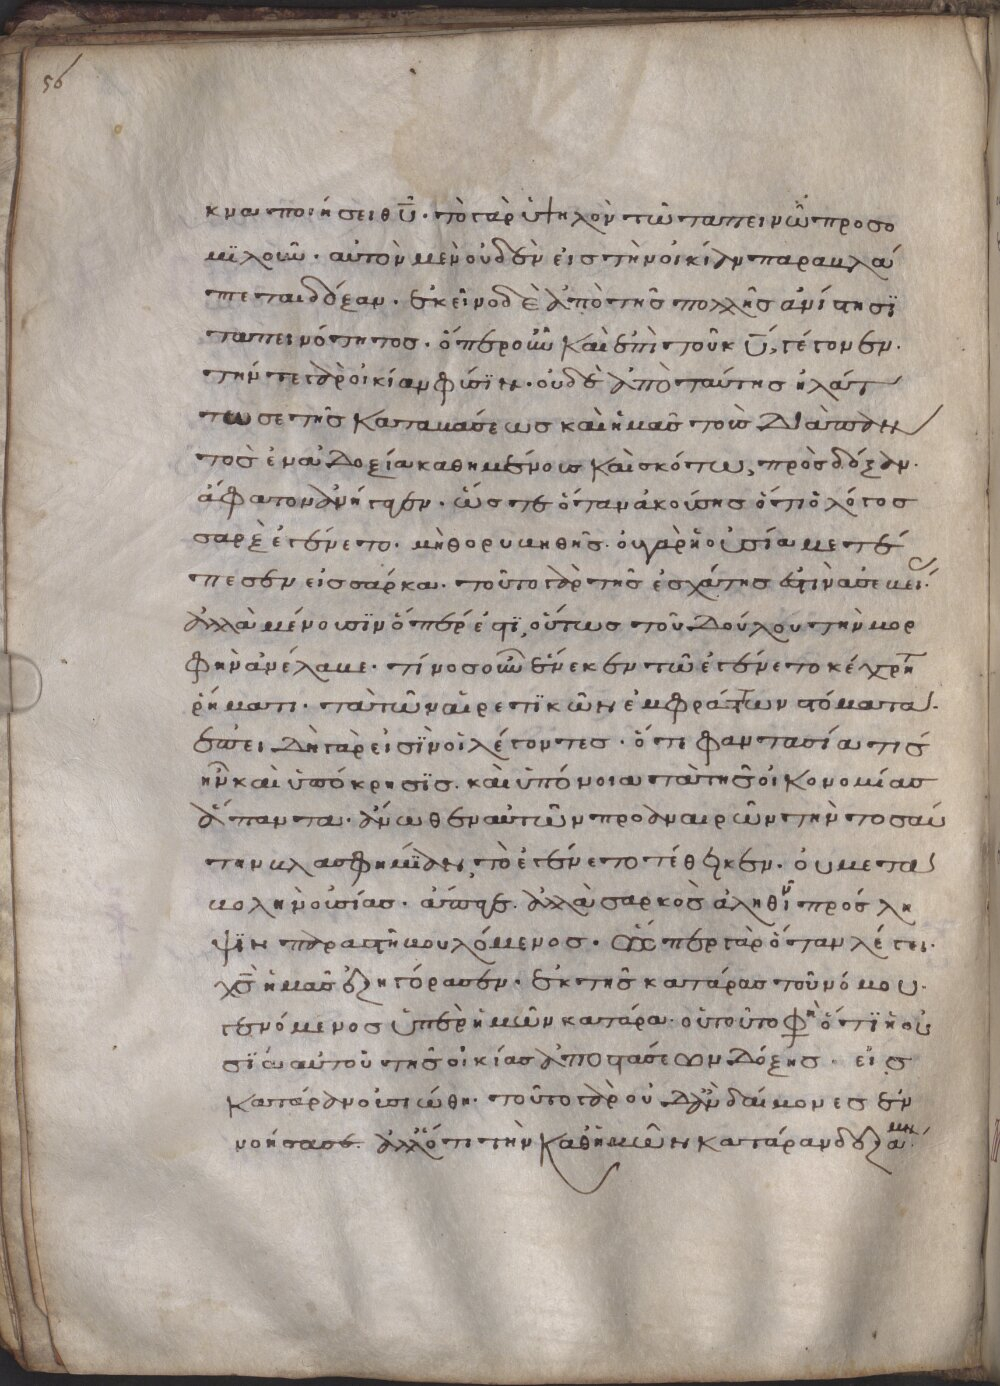 56
κνα ποιήσει θῦ. τὸ γὰρ ὑψηλὸν τῶ ταπεινῶ προσο
μϊλοῦν. αὐτὸν μὲν οὐδὲν εἰς τὴν οἰκίαν παραβλά
πτει δόξαν. ἐκεῖνο δὲ ἀπὸ τῆς πολλῆς ἀνίστησϊ
ταπεινότητος. ὅπερ οὖν καὶ ἐπὶ τοῦ κῦ, γέγονεν.
τήν τε γὰρ οἰκίαν φύσϊν. οὐδὲ ἀπὸ ταύτης ἠλάτ
τωσε τῆς καταβάσεως καὶ ἡμᾶς τοὺς διαπαν
τὸς ἐν ἀδοξία καθημένους καὶ σκότω, πρὸς δόξαν.
ἄφατον ἀνήγαγεν. ὥστε ὅταν ἀκούσης ὅτι ὁ λόγος
σαρξ ἐγένετο. μὴ θορυβηθῆς. οὐ γὰρ ἡ οὐσία μετέ
πεσεν εἰς σάρκα. τοῦτο γὰρ τῆς ἐσχάτης ἐστὶν ἀσεβεί.
ἀλλὰ μένουσϊν ὅπερ ἐστϊ, οὕτως τοῦ δούλου τὴν μορ
φὴν ἀνέλαβε. τίνος οὖν ἕνεκεν τῶ ἐγένετο κέχρητ
ῥήματι. τὰ τῶν αἱρετϊκῶν ἐμφράττων στόματα.
ἐπει δὴ γὰρ εἰσϊν οἱ λέγοντες. ὅτι φαντασία τίς
ἦν καὶ ὑπόκρησϊς. καὶ ὑπόνοια τὰ τῆς οἰκονομίας
ἅπαντα. ἄνωθεν αὐτῶν προαναιρῶν τὴν τοσαύ
την βλασφημϊαν, τὸ ἐγένετο τέθηκεν. οὐ μετα
βολὴν οὐσίας. ἄπαγε. ἀλλὰ σαρκὸς ἀληθινῆ πρόσλη
ψϊν παραστῆ βουλόμενος. ὥσπερ γὰρ ὅταν λέγη.
χς ἡμᾶς ἐξηγόρασεν. ἐκ τῆς κατάρας τοῦ νόμου.
γενόμενος ὑπὲρ ἡμῶν κατάρα. οὐ τοῦτο φη ὅτϊ ἡ οὐ
σϊα αὐτοῦ τῆς οἰκίας ἀποστᾶσα δόξης. εἰς
κατάραν οὐσιώθη. τοῦτο γὰρ οὐδ ἂν δαίμονες ἐν
νοήσαιεν. ἀλλ ὅτι τὴν καθ ἡμῶν κατάραν δεξά